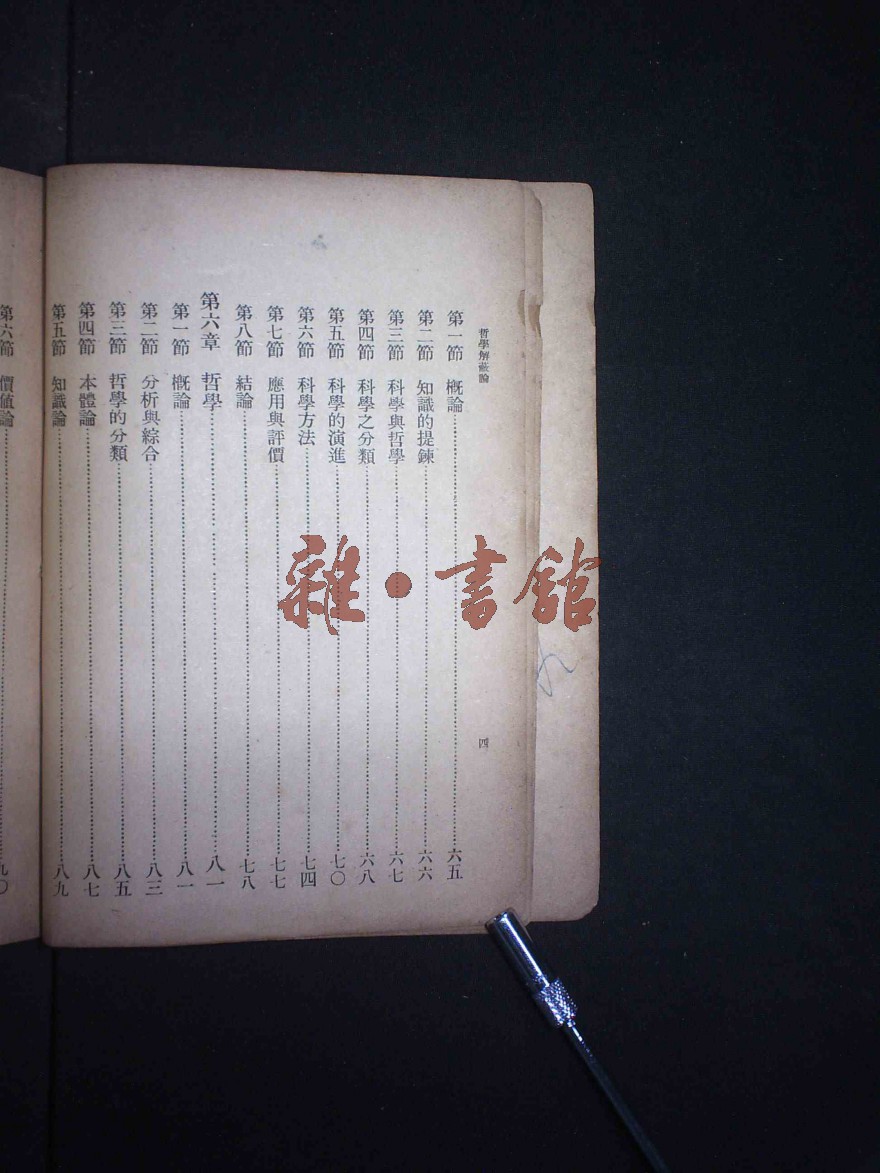 哲學解蔽論
四
第一節 概論 六五
第二節 知識的提鍊 六六
第三節 科學與哲學 六七
第四節 科學之分類 六八
第五節 科學的演進 七〇
第六節 科學方法 七四
第七節 應用與評價 七七
第八節 結論 七八
第六章 哲學 八一
第一節 概論 八一
第二節 分析與綜合 八三
第三節 哲學的分類 八五
第四節 本體論 八七
第五節 知識論 八九
第六節 價値論 九〇
雜·書館